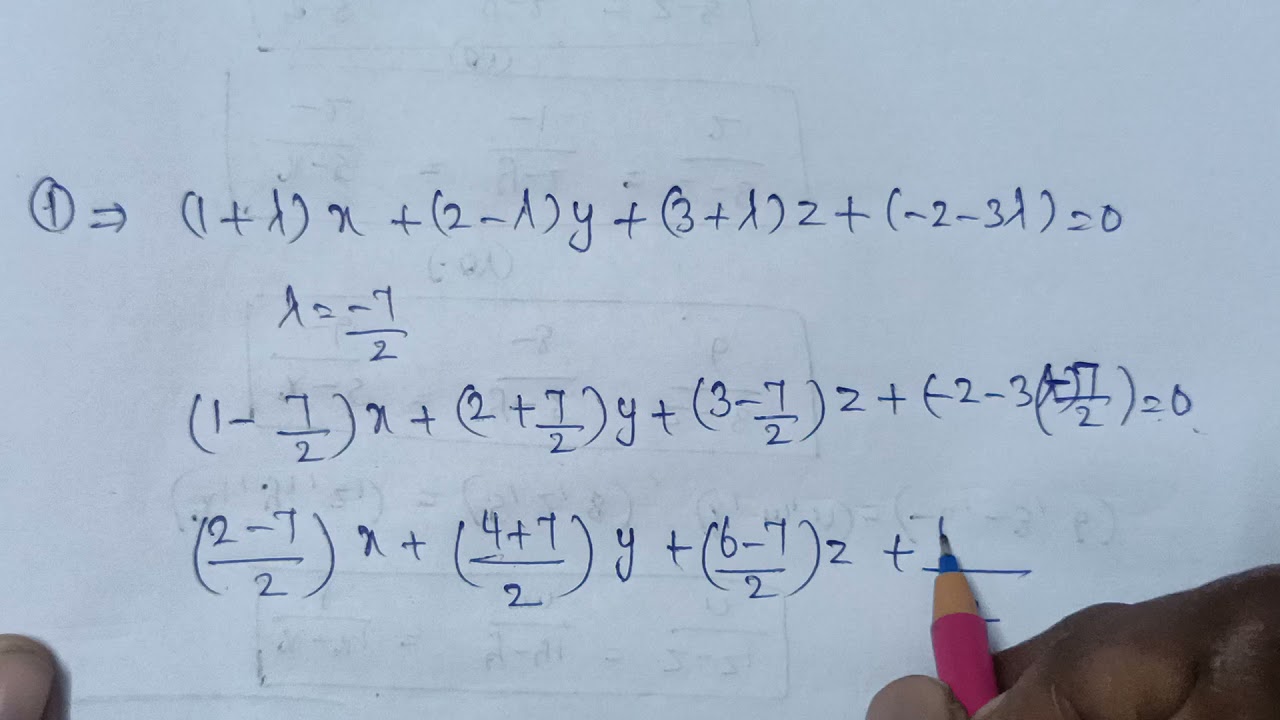 ① ⇒ (1 + λ) x + (2 - λ) y + (3 + λ) z + (-2 - 3λ) = 0
λ = -7/2
(1 - 7/2) x + (2 + 7/2) y + (3 - 7/2) z + (-2 - 3(-7/2) = 0
((2 - 7)/2) x + ((4 + 7)/2) y + ((6 - 7)/2) z +